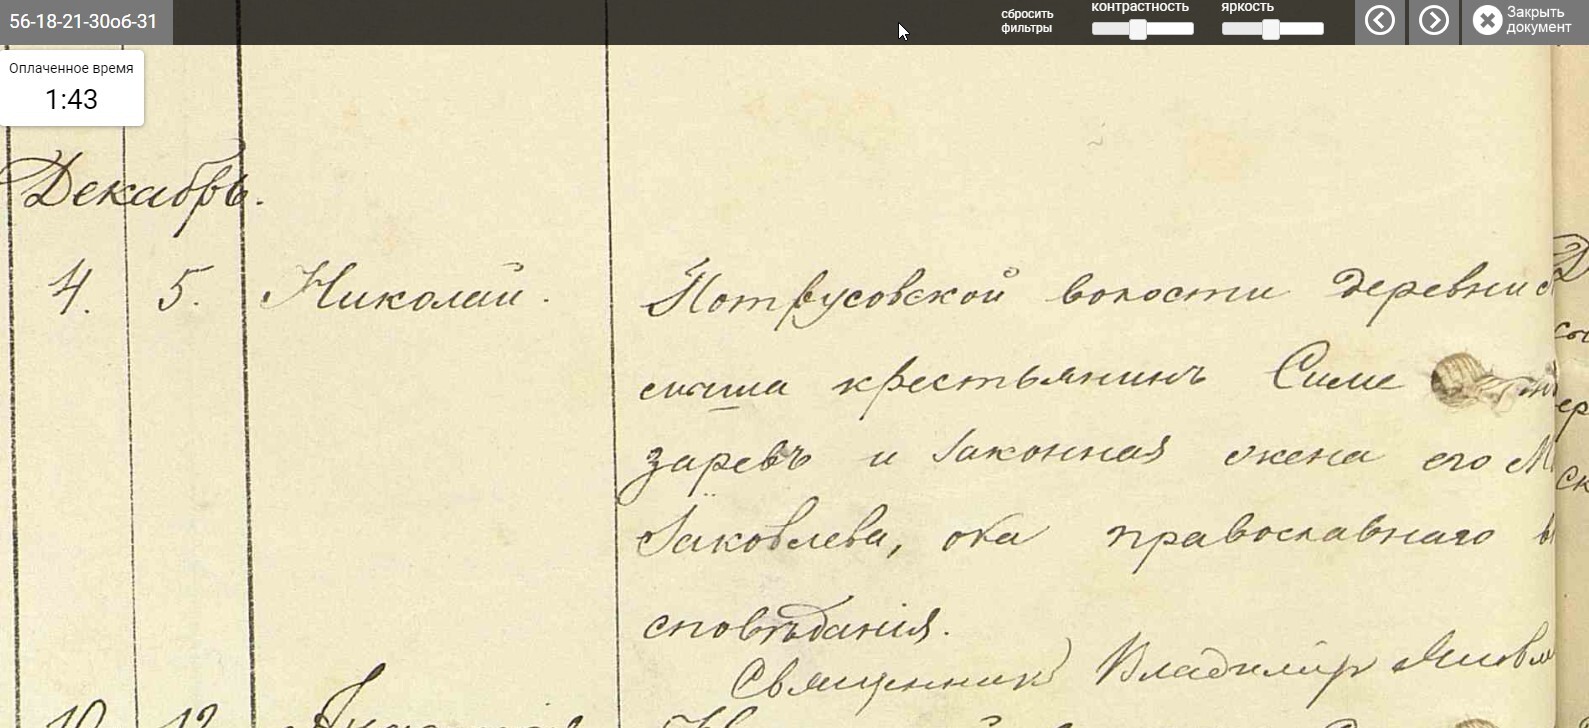 56-18-21-30об-31
сбросить фильтры
контрастность
яркость
Закрыть документ
Оплаченное время
1:43
Декабрь.
4. 5. Николай. Потрусовской волости деревни
крестьянинъ Симе
заревъ и законная жена его М
Iаковлева, оба православнаго в
сповѣданія.
Священникъ Владимiръ
10 12